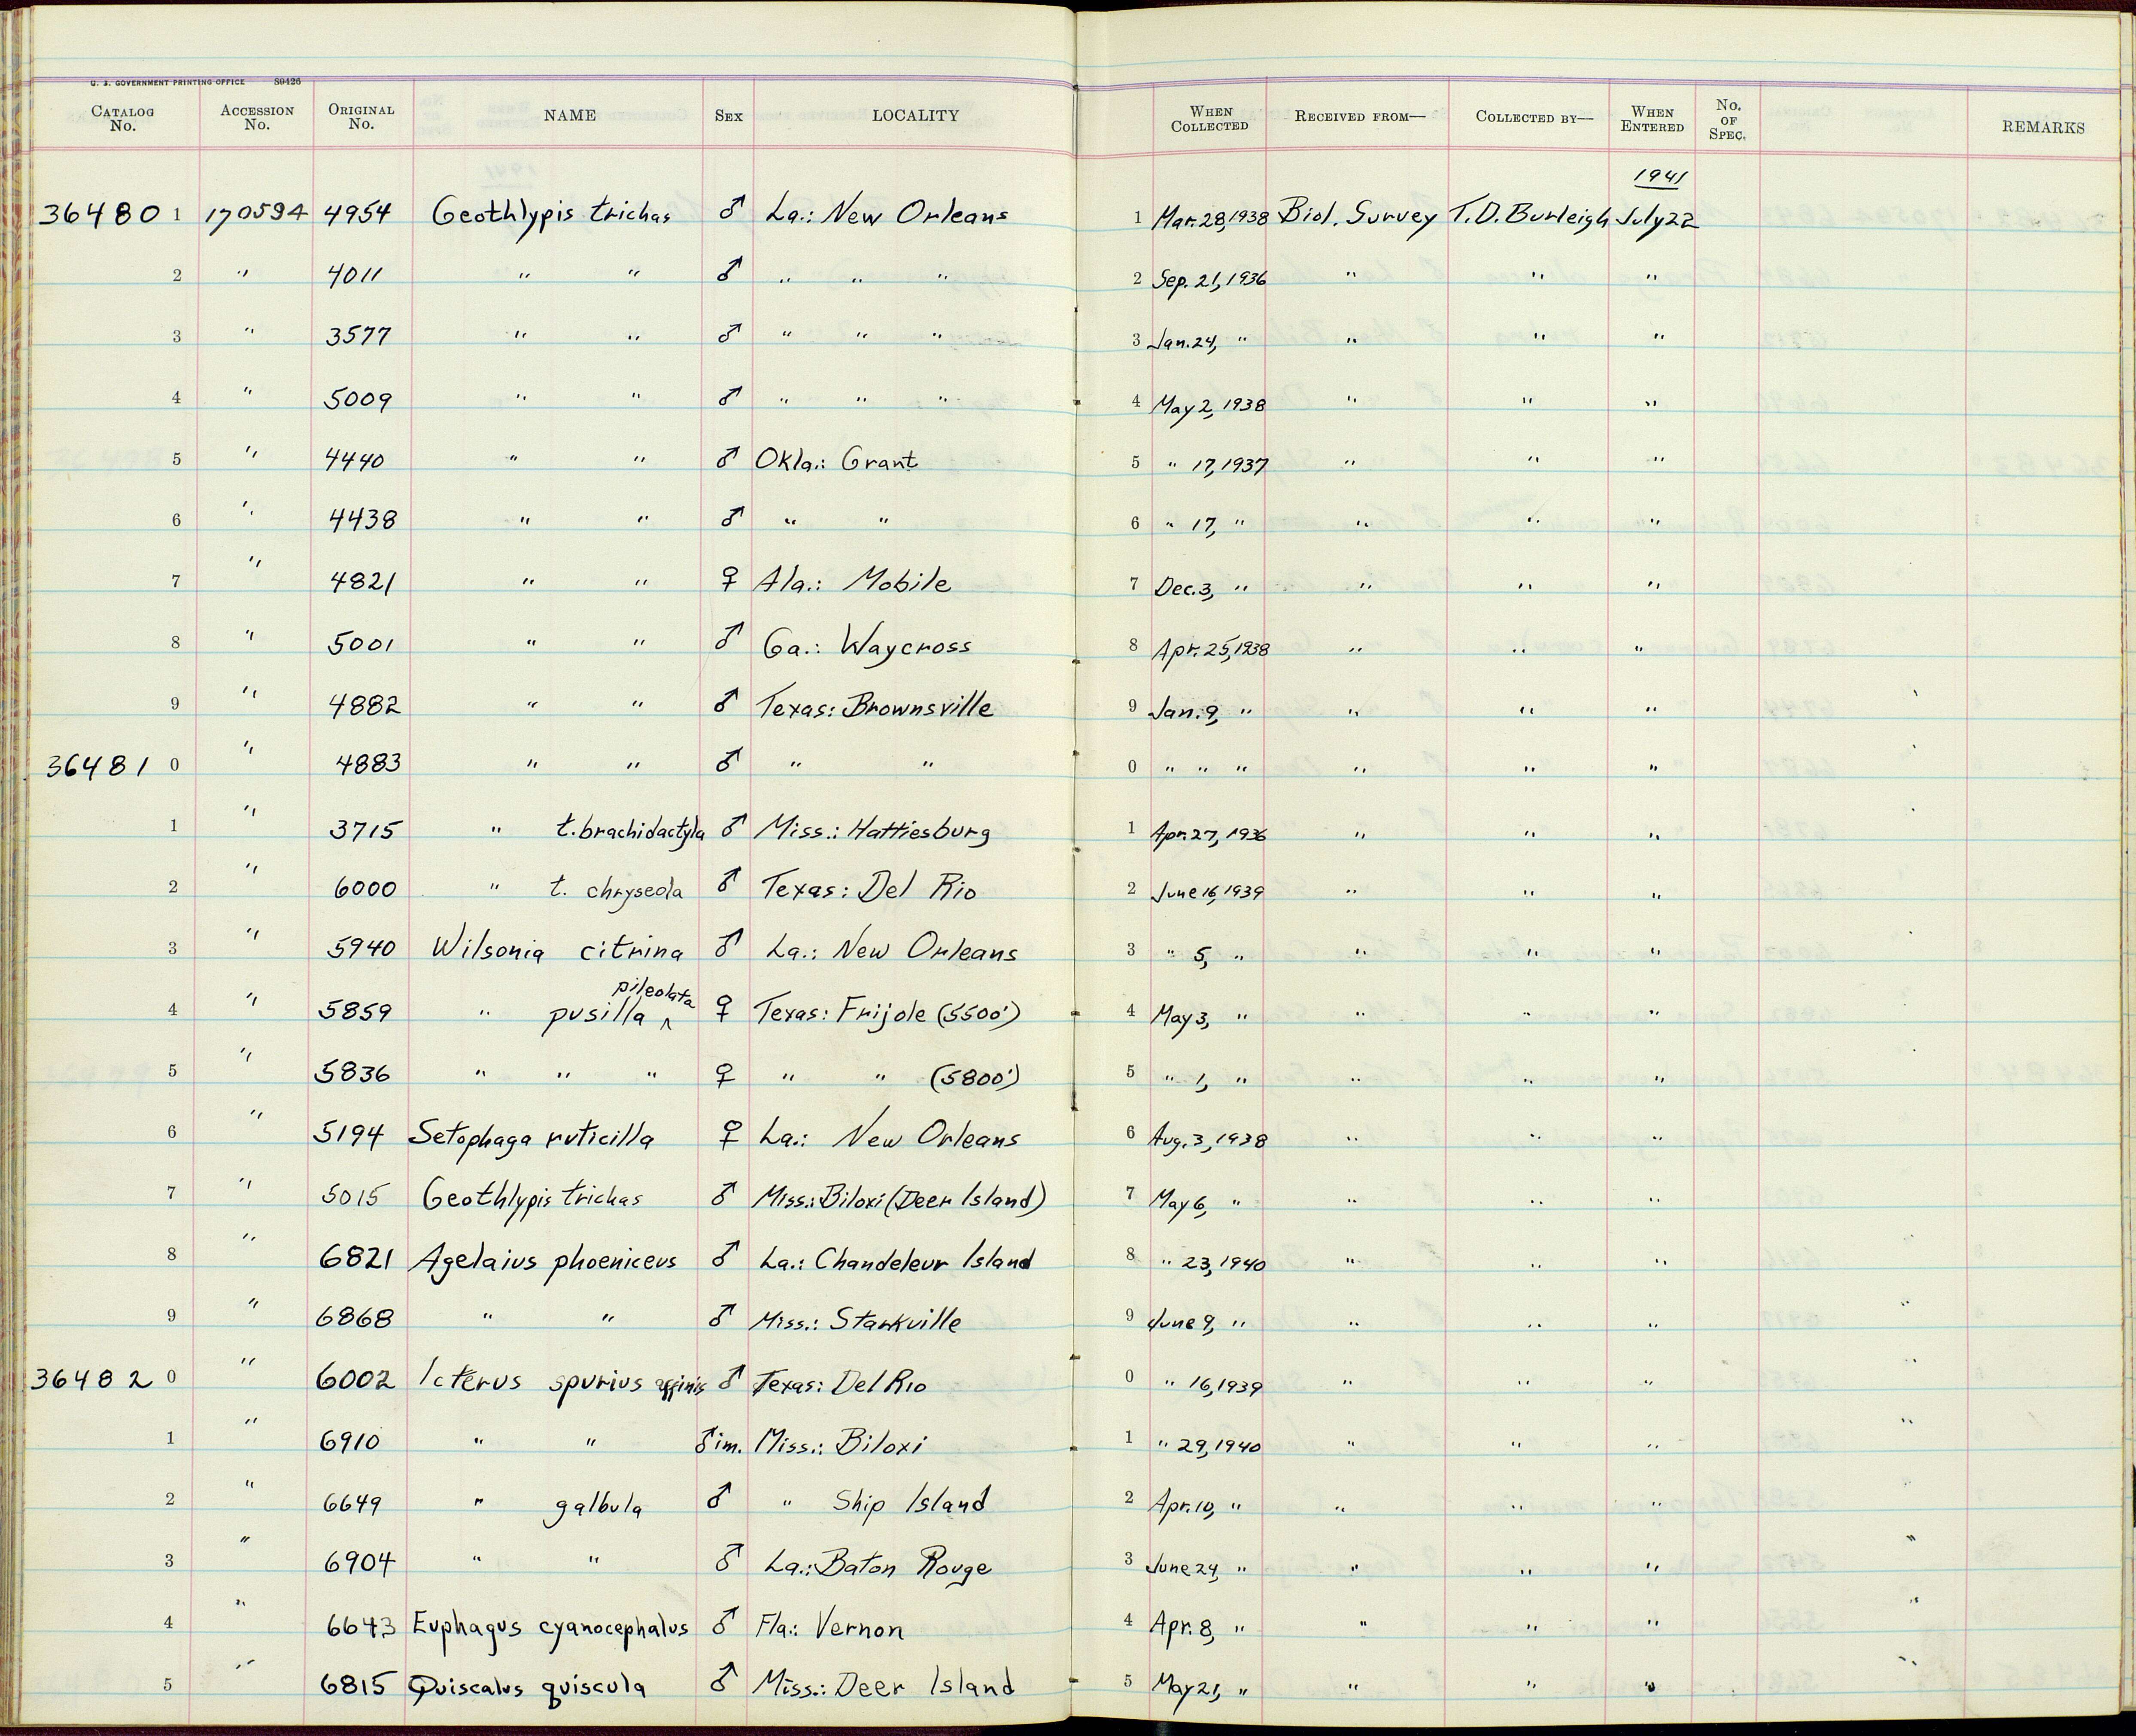 U. S. GOVERNMENT PRINTING OFFICE 89426
CATALOG No. ACCESSION No. ORIGINAL No. NAME SEX LOCALITY WHEN COLLECTED RECEIVED FROM— COLLECTED BY— WHEN ENTERED No. OF SPEC. REMARKS
1941
36480 1 170594 4954 Geothlypis trichas ♂ La.: New Orleans 1 Mar. 28, 1938 Biol. Survey T.D. Burleigh July 22
2 " 4011 " " ♂ " " " 2 Sep. 21, 1936 " " "
3 " 3577 " " ♂ " " " 3 Jan. 24, " " " "
4 " 5009 " " ♂ " " " 4 May 2, 1938 " " "
5 " 4440 " " ♂ Okla.: Grant 5 " 17, 1937 " " "
6 " 4438 " " ♂ " " 6 " 17, " " " "
7 " 4821 " " ♀ Ala.: Mobile 7 Dec. 3, " " " "
8 " 5001 " " ♂ Ga.: Waycross 8 Apr. 25, 1938 " " "
9 " 4882 " " ♂ Texas: Brownsville 9 Jan. 9, " " " "
36481 0 " 4883 " " ♂ " " 0 " " " " " "
1 " 3715 " t. brachidactyla ♂ Miss.: Hattiesburg 1 Apr. 27, 1936 " " "
2 " 6000 " t. chryseola ♂ Texas: Del Rio 2 June 16, 1939 " " "
3 " 5940 Wilsonia citrina ♂ La.: New Orleans 3 " 5, " " " "
4 " 5859 " pusilla ^ pileolata ♀ Texas: Frijole (5500') 4 May 3, " " " "
5 " 5836 " " " ♀ " " (5800') 5 " 1, " " " "
6 " 5194 Setophaga ruticilla ♀ La.: New Orleans 6 Aug. 3, 1938 " " "
7 " 5015 Geothlypis trichas ♂ Miss.: Biloxi (Deer Island) 7 May 6, " " " "
8 " 6821 Agelaius phoeniceus ♂ La.: Chandeleur Island 8 " 23, 1940 " " "
9 " 6868 " " ♂ Miss.: Starkville 9 June 9, " " " " "
36482 0 " 6002 Icterus spurius affinis ♂ Texas: Del Rio 0 " 16, 1939 " " " "
1 " 6910 " " ♂ im. Miss.: Biloxi 1 " 29, 1940 " " " "
2 " 6649 " galbula ♂ " Ship Island 2 Apr. 10, " " " "
3 " 6904 " " ♂ La.: Baton Rouge 3 June 24, " " " " "
4 " 6643 Euphagus cyanocephalus ♂ Fla.: Vernon 4 Apr. 8, " " " " "
5 " 6815 Quiscalus quiscula ♂ Miss.: Deer Island 5 May 21, " " " " "